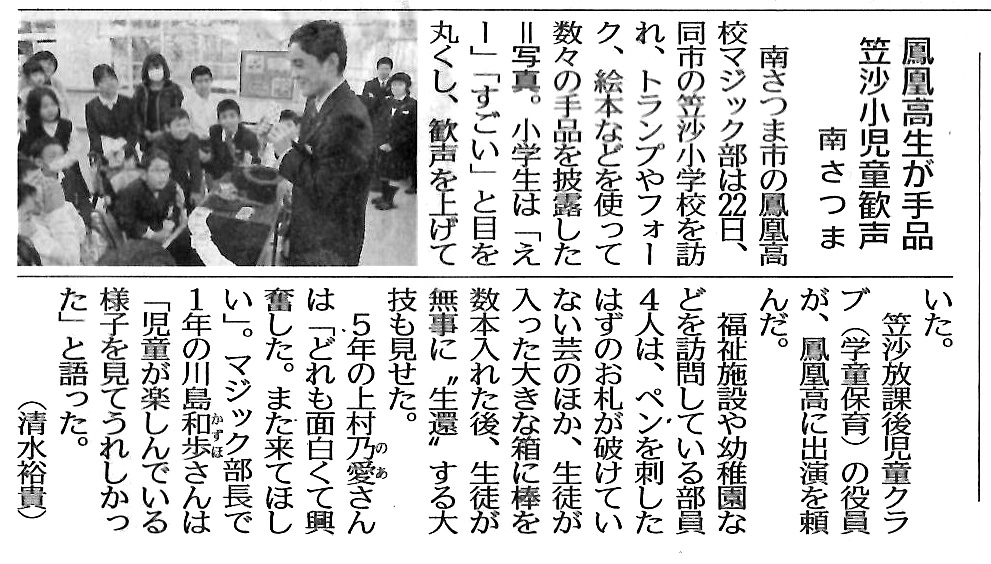 鳳凰高生が手品
笠沙小児童歓声
南さつま
南さつま市の鳳凰高
校マジック部は22日、
同市の笠沙小学校を訪
れ、トランプやフォー
ク、絵本などを使って
数々の手品を披露した
＝写真。小学生は「え
ー」「すごい」と目を
丸くし、歓声を上げて
いた。
笠沙放課後児童クラ
ブ（学童保育）の役員
が、鳳凰高に出演を頼
んだ。
福祉施設や幼稚園な
どを訪問している部員
4人は、ペンを刺した
はずのお札が破けてい
ない芸のほか、生徒が
入った大きな箱に棒を
数本入れた後、生徒が
無事に〝生還〟する大
技も見せた。
5年の上村乃愛さん
のあ
は「どれも面白くて興
奮した。また来てほし
い」。マジック部長で
1年の川島和歩さんは
かずほ
「児童が楽しんでいる
様子を見てうれしかっ
た」と語った。
（清水裕貴）